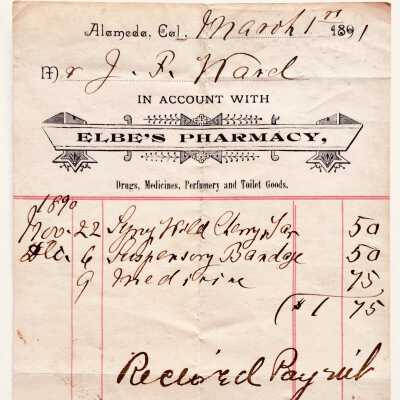 Alameda, Cal. March 1st 1891
Mr J. F. Ward
IN ACCOUNT WITH
ELBE'S PHARMACY,
Drugs, Medicines, Perfumery and Toilet Goods.
1890
Nov. 22 Syrup Wild Cherry & Tar 50
Dec. 6 Suspensory Bandage 50
9 Medicine 75
($1 75
Received Payment